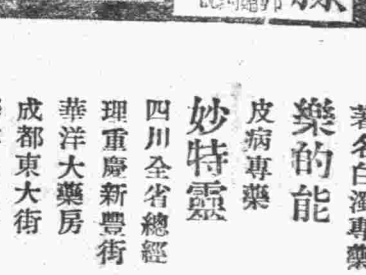 著名白濁專藥
樂的能
皮病專藥
妙特靈
四川全省總經
理重慶新豐街
華洋大藥房
成都東大街